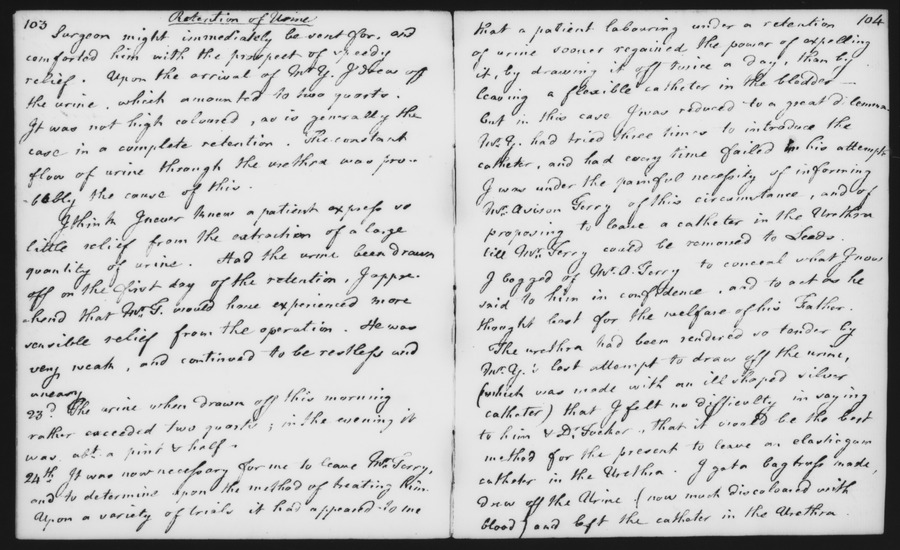 103
Retention of Urine
Surgeon might immediately be sent for, and
comforted him with the prospect of speedy
relief. Upon the arrival of Mr. Y. I drew off
the urine, which amounted to two quarts.
It was not high coloured, as is generally the
case in a complete retention. The constant
flow of urine through the urethra was pro-
-bably the cause of this.
I think I never knew a patient express so
little relief from the extraction of a large
quantity of urine. Had the urine been drawn
off on the first day of the retention, I appre-
-hend that Mr. T. would have experienced more
sensible relief from the operation. He was
very weak, and continued to be restless and
uneasy.
23d. The urine when drawn off this morning
rather exceeded two quarts; in the evening it
was abt. a pint & half.
24th. It was now necessary for me to leave Mr. Terry,
and to determine upon the method of treating him.
Upon a variety of trials it had appeared to me
104
that a patient labouring under a retention
of urine sooner regained the power of expelling
it, by drawing it off twice a day, than by
leaving a flexible catheter in the bladder
but in this case I was reduced to a great dilemma
Mr. Y. had tried three times to introduce the
catheter, and had every time failed in his attempt.
I was under the painful necessity of informing
Mr. Avison Terry of this circumstance, and of
proposing to leave a catheter in the Urethra
till Mr. Terry could be removed to Leeds.
I begged of Mr. A. Terry to conceal what I now
said to him in confidence, and to act as he
thought best for the welfare of his Father.
The urethra had been rendered so tender by
Mr. Y.'s last attempt to draw off the urine,
(which was made with an ill shaped silver
catheter) that I felt no difficulty in saying
to him & Dr. , that it would be the best
method for the present to leave an elasticgum
catheter in the Urethra. I got a bag truss made,
drew off the Urine (now much discoloured with
blood) and left the catheter in the Urethra.